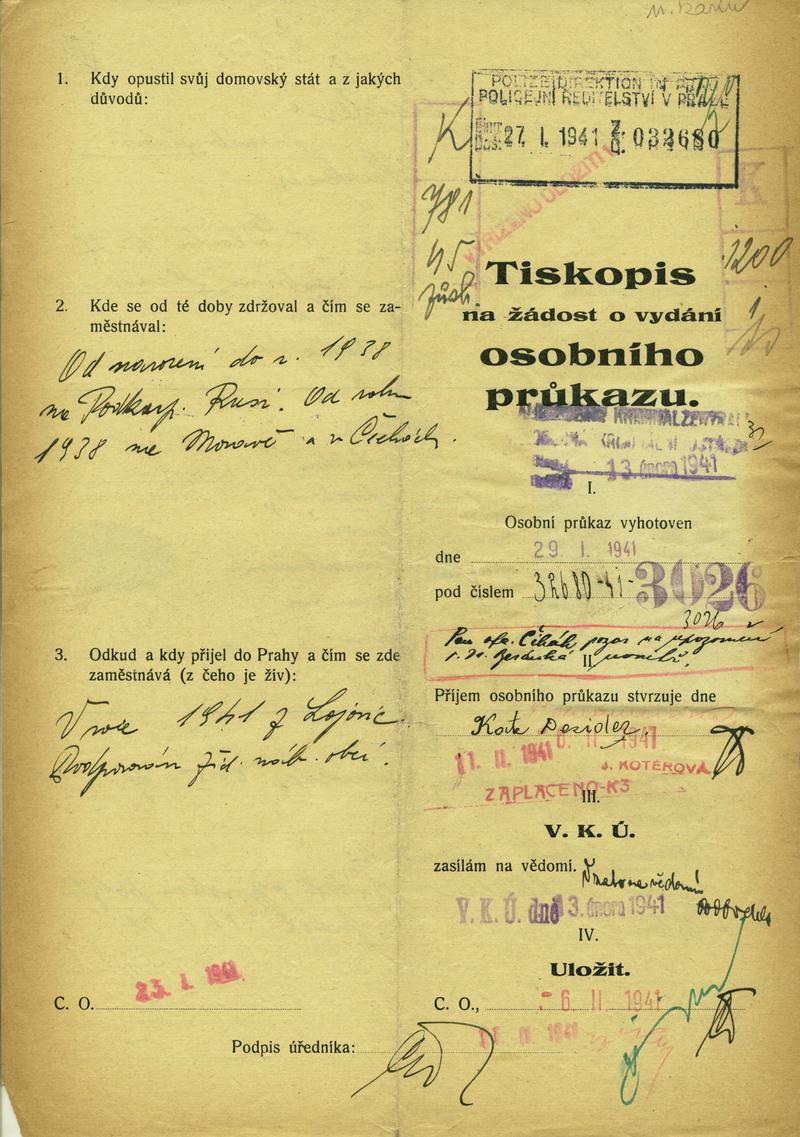 1. Kdy opustil svůj domovský stát a z jakých
důvodů:
2. Kde se od té doby zdržoval a čím se za-
městnával:
Od narození do r. 1938
na Podkarp. Rusi. Od roku
1938 na Moravě a v Čechách.
3. Odkud a kdy přijel do Prahy a čím se zde
zaměstnává (z čeho je živ):
V roce 1941 z
Podporován žid. náb. obcí.
23. I. 1941
C. O.
Podpis úředníka:
POLIZEIDIREKTION IN PRAG
POLICEJNÍ ŘEDITELSTVÍ V PRAZE
27. I. 1941 032680
K
781
45
K
1200
Tiskopis
na žádost o vydání
osobního
průkazu.
KRIMINALZENTRALE
13. února 1941
I.
Osobní průkaz vyhotoven
dne 29. I. 1941
pod číslem 32680-41- 3026
3026
Pan Čihák, pozor na upozornění
II.
Příjem osobního průkazu stvrzuje dne
Katz Desider.
11. II. 1941 6. II. 1941
J. KOTĚROVÁ
ZAPLACENO-K3
III.
V. K. Ú.
zasílám na vědomí.
Vzato na vědomí
V. K. Ú. dne 13. února 1941
IV.
Uložit.
C. O., - 6. II. 1941
11. II. 1941